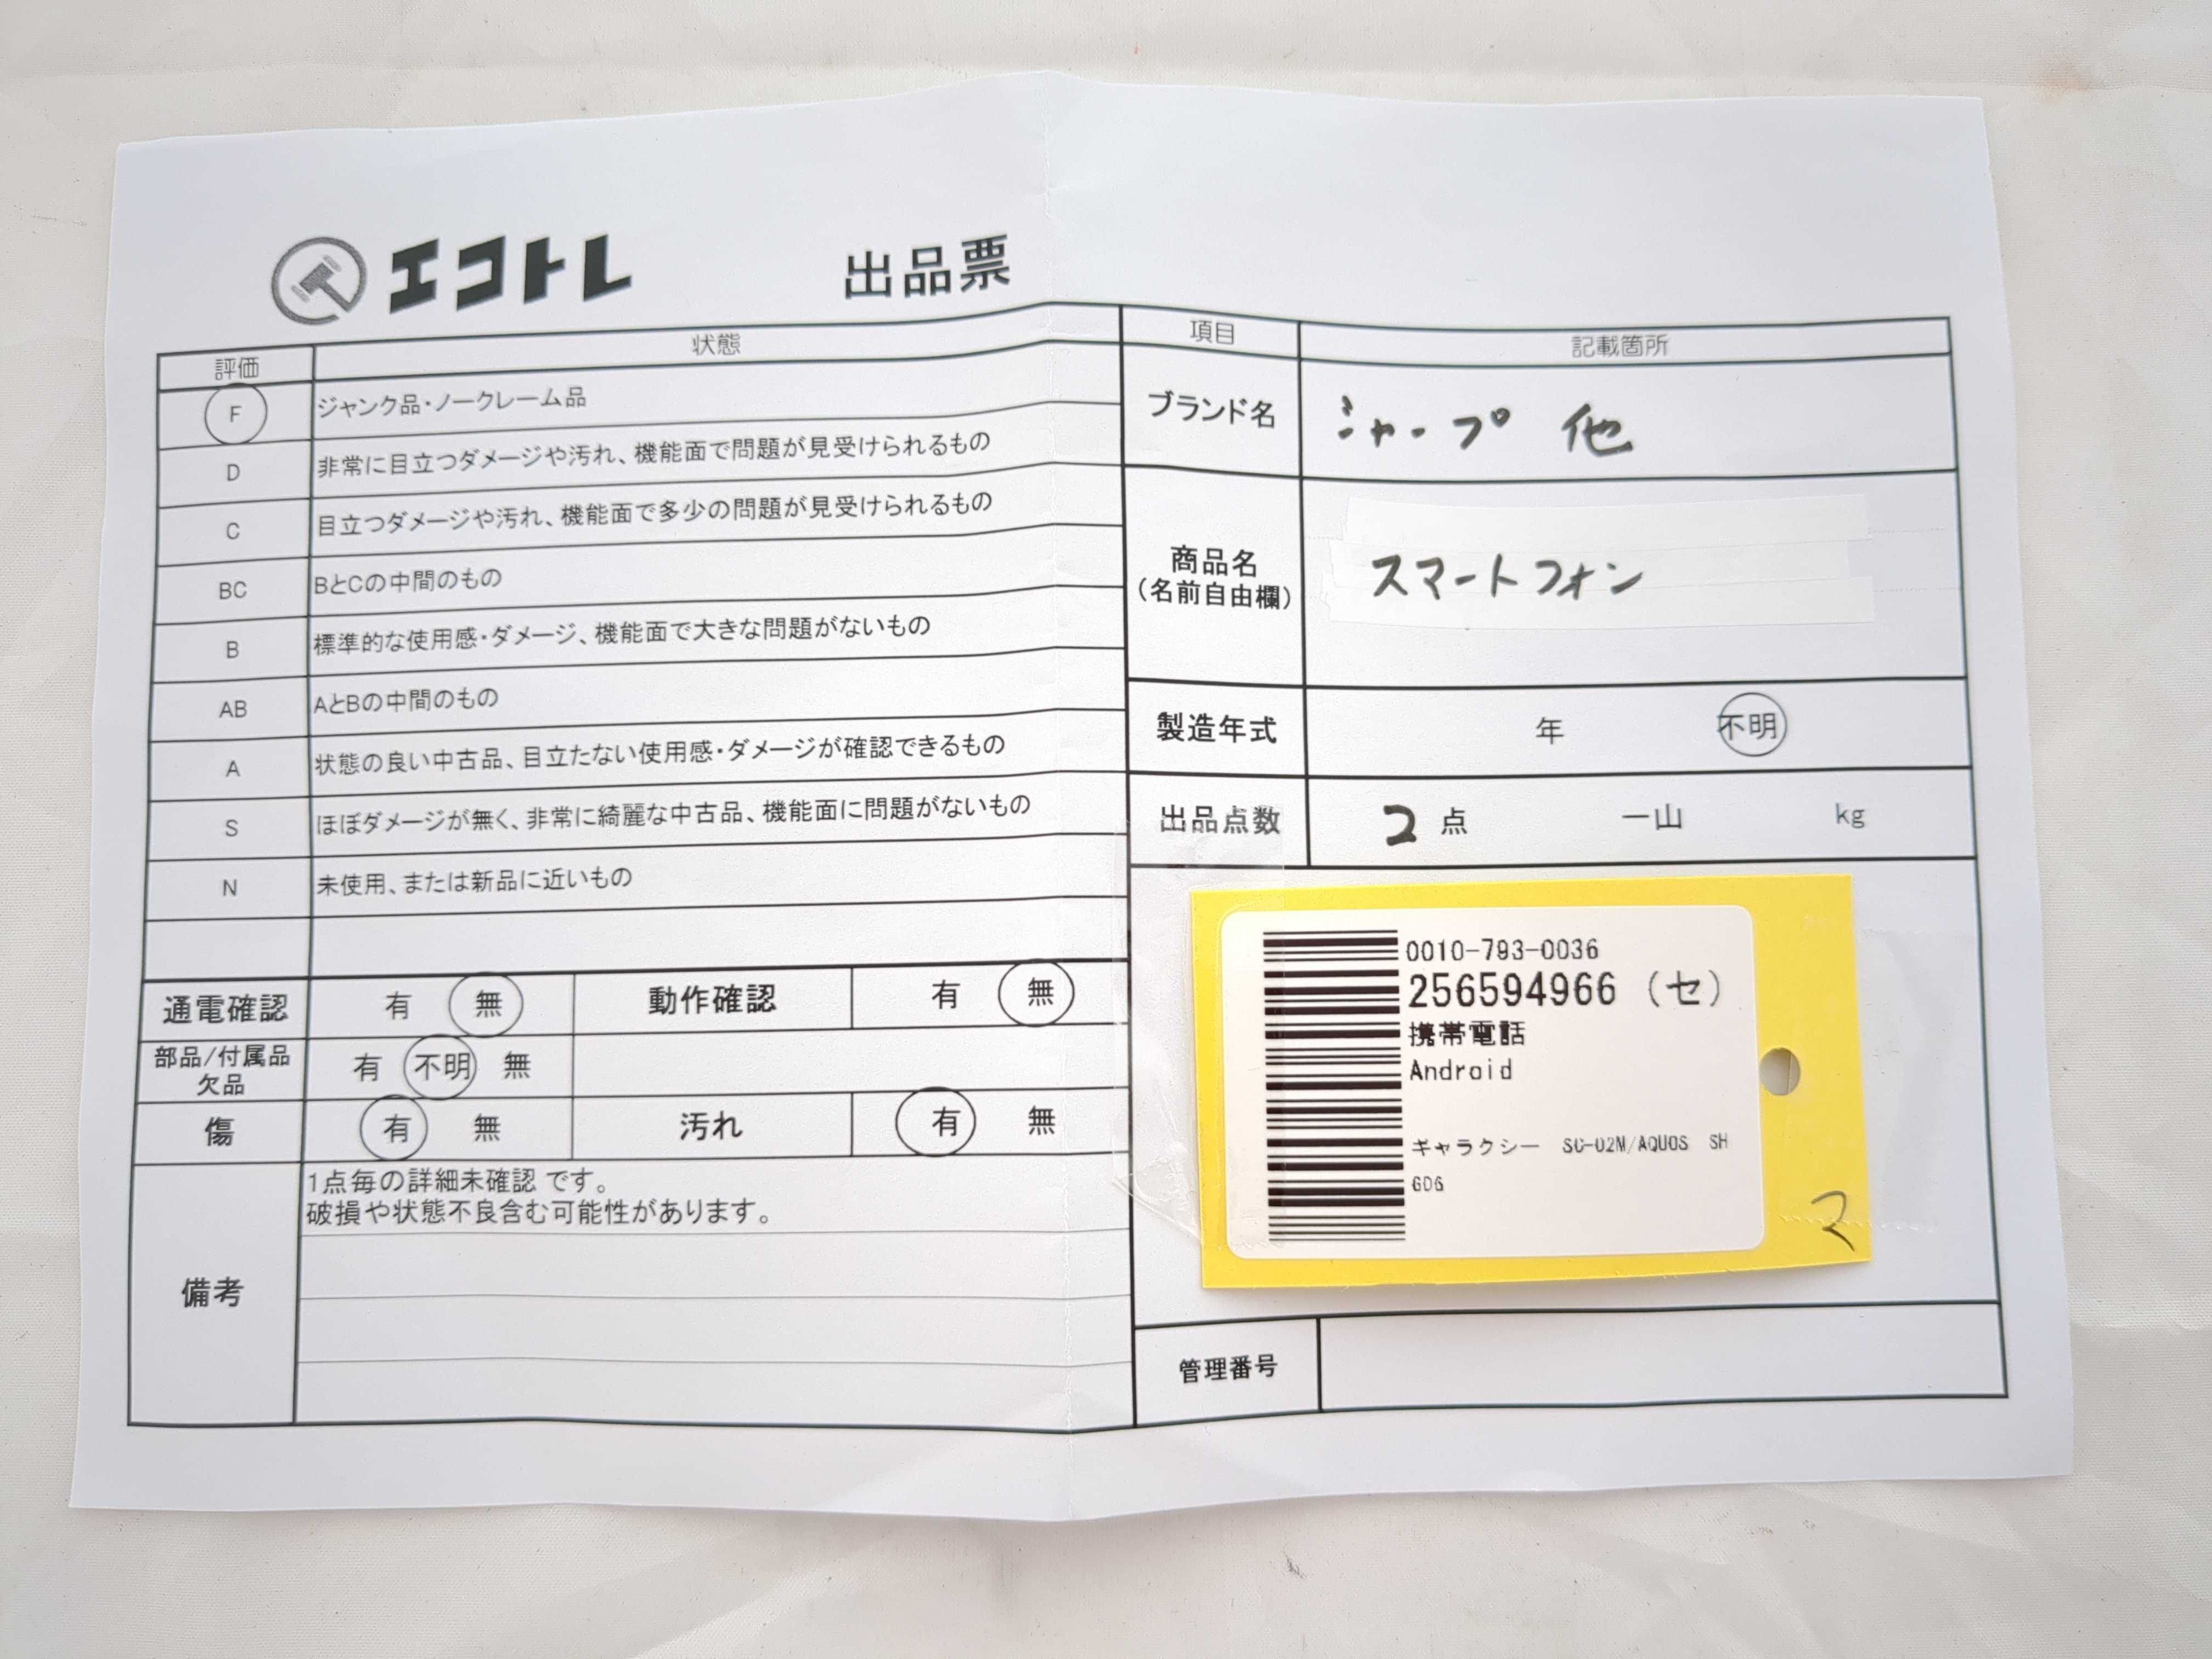 エコトレ 出品票
評価 状態
F ジャンク品・ノークレーム品
D 非常に目立つダメージや汚れ、機能面で問題が見受けられるもの
C 目立つダメージや汚れ、機能面で多少の問題が見受けられるもの
BC BとCの中間のもの
B 標準的な使用感・ダメージ、機能面で大きな問題がないもの
AB AとBの中間のもの
A 状態の良い中古品、目立たない使用感・ダメージが確認できるもの
S ほぼダメージが無く、非常に綺麗な中古品、機能面に問題がないもの
N 未使用、または新品に近いもの
通電確認 有 無 動作確認 有 無
部品/付属品 有 不明 無
欠品
傷 有 無 汚れ 有 無
備考
1点毎の詳細未確認 です。
破損や状態不良含む可能性があります。
項目 記載箇所
ブランド名 シャープ 他
商品名 スマートフォン
(名前自由欄)
製造年式 年 不明
出品点数 2 点 一山 kg
0010-793-0036
256594966 (セ)
携帯電話
Android
ギャラクシー SC-02M/AQUOS SH
G06
マ
管理番号